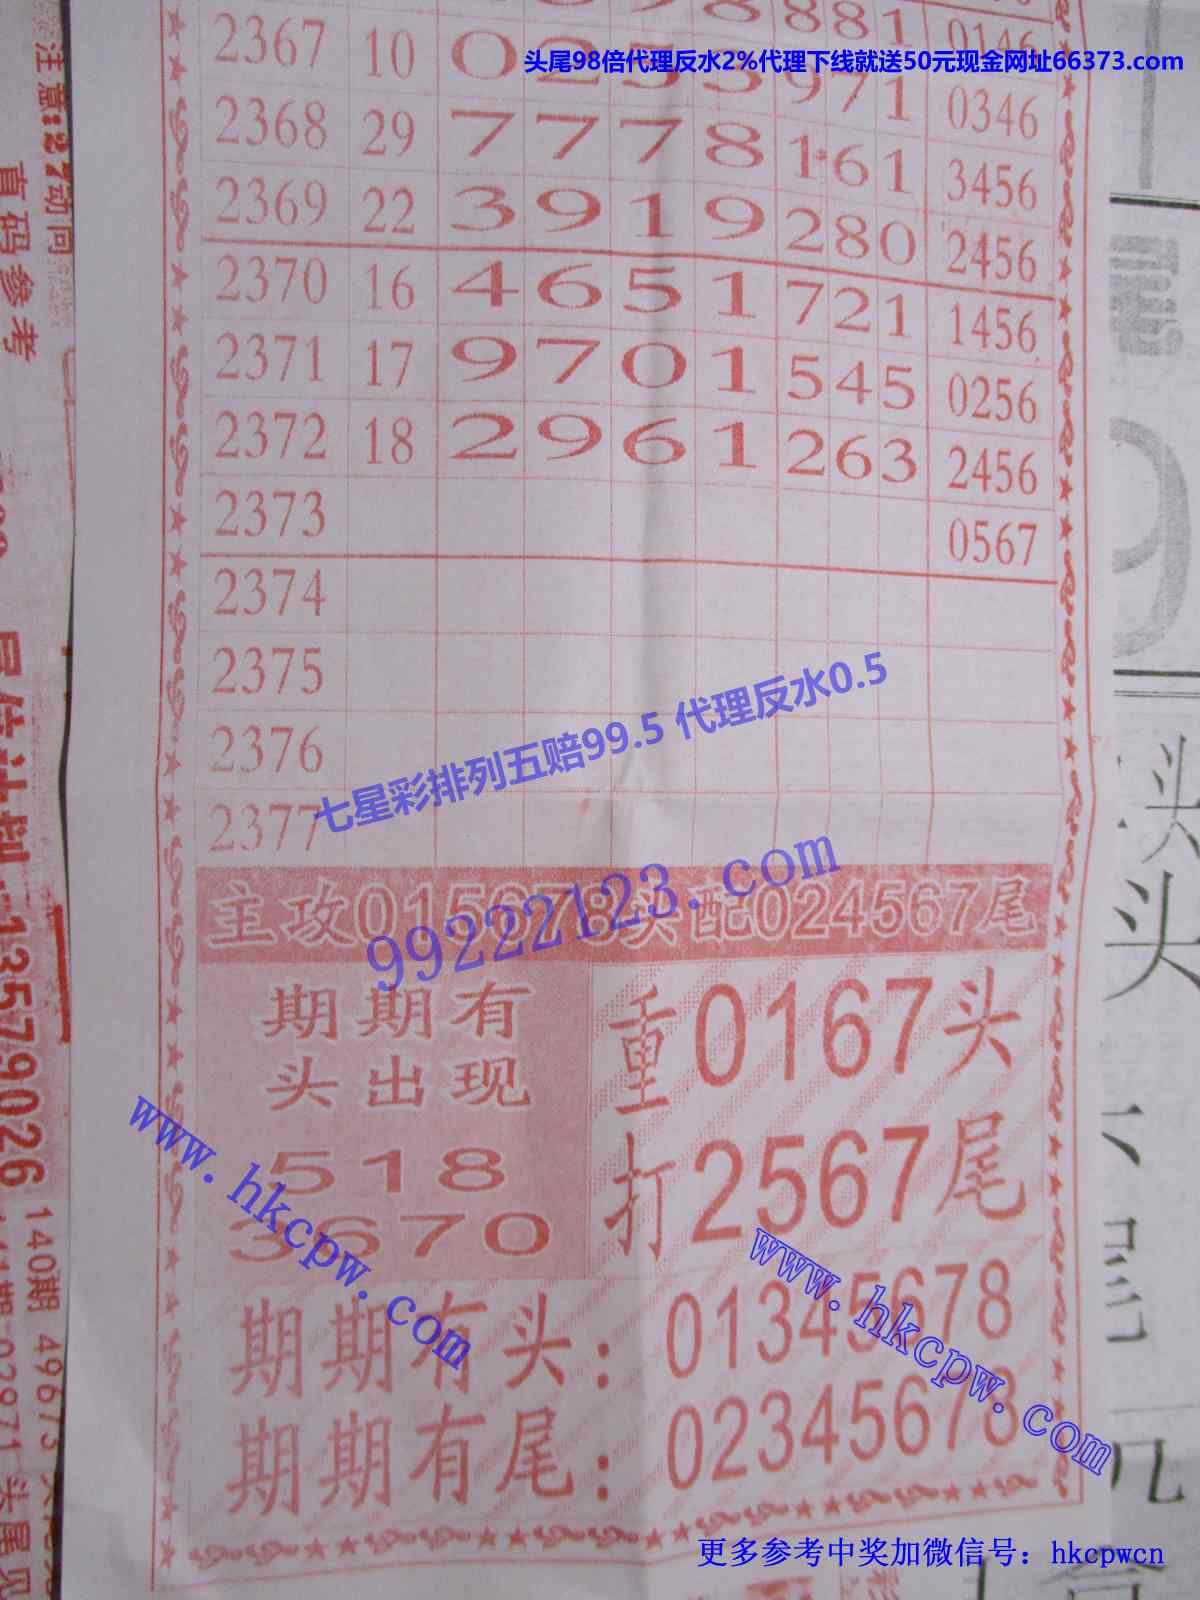 头尾98倍代理反水2%代理下线就送50元现金网址66373.com
2367 10 0 2 5 3 9 7 1 0146
2368 29 7 7 7 8 1 6 1 0346
3456
2369 22 3 9 1 9 2 8 0
2456
2370 16 4 6 5 1 7 2 1
1456
2371 17 9 7 0 1 5 4 5
0256
2372 18 2 9 6 1 2 6 3
2456
2373
0567
2374
2375
2376
2377
七星彩排列五赔99.5 代理反水0.5
99222123.com
主攻015678头配024567尾
期期有
头出现
518
3670
重0167头
打2567尾
期期有头：01345678
期期有尾：02345678
www.hkcpw.com
www.hkcpw.com
更多参考中奖加微信号：hkcpwcn
注意:27动向
真码参考
13579026
140期 49673
02971头尾见
头
头
元